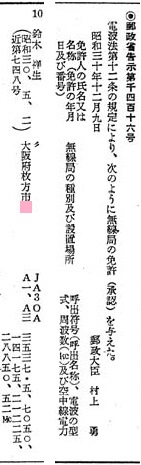 ◉郵政省告示第千四百十六号
電波法第十二条の規定により、次のように無線局の免許(承認)を与えた。
昭和三十年十二月九日
郵政大臣 村上 勇
免許人の氏名又は名称(免許の年月日及び番号)
無線局の種別及び設置場所
呼出符号(呼出名称)、電波の型式、周波数(kc)及び空中線電力
10 鈴木 洋生
(昭和三〇、五、二
近第七四八号)
〃 大阪府枚方市
JA3OA
A一、A三
三五三七・五、七〇五〇、
一四一七五、二一二二五、
二八八五〇、五二Mc